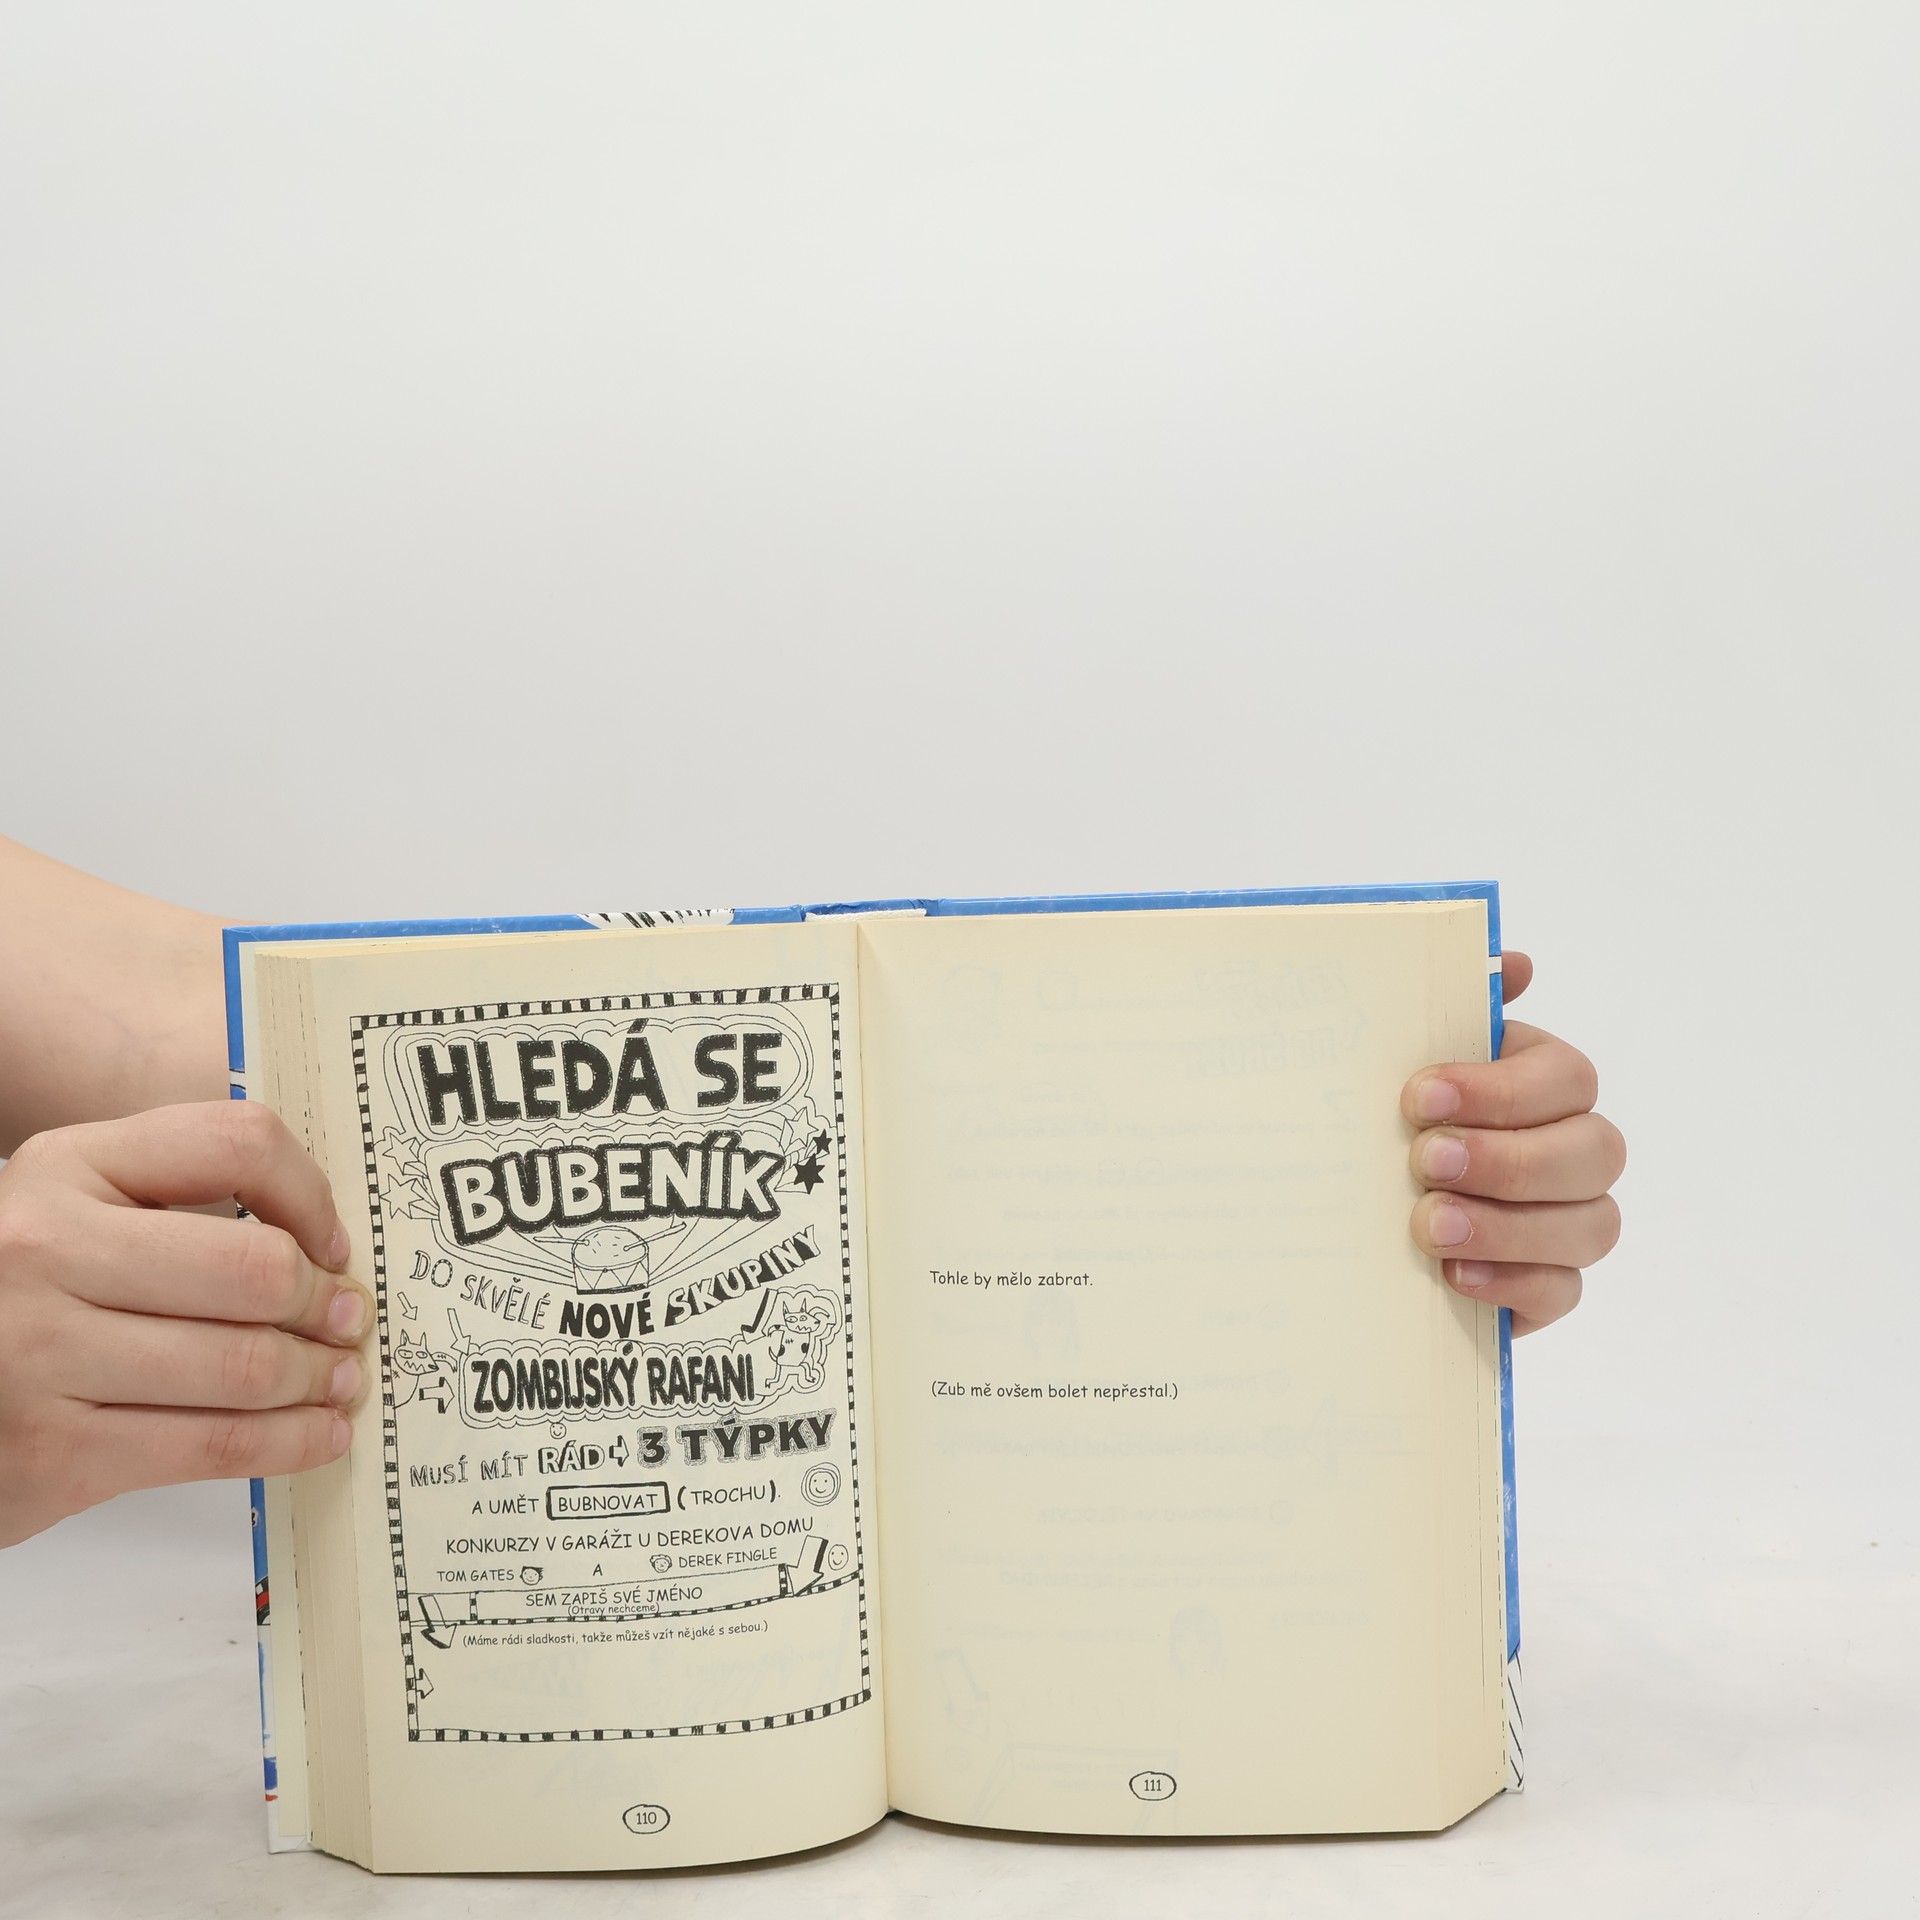 HLEDÁ SE
BUBENÍK
DO SKVĚLÉ NOVÉ SKUPINY
ZOMBIJSKÝ RAFANI
MUSÍ MÍT RÁD 3 TÝPKY
A UMĚT BUBNOVAT (TROCHU).
KONKURZY V GARÁŽI U DEREKOVA DOMU
TOM GATES A DEREK FINGLE
SEM ZAPIŠ SVÉ JMÉNO
(Otravy nechceme)
(Máme rádi sladkosti, takže můžeš vzít nějaké s sebou.)
110
Tohle by mělo zabrat.
(Zub mě ovšem bolet nepřestal.)
111